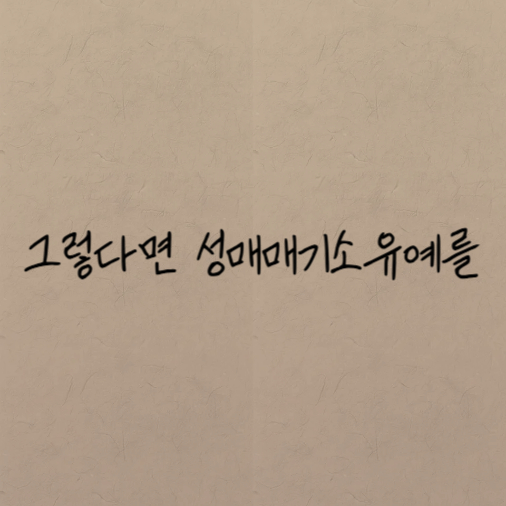 그렇다면 성매매기소유예를